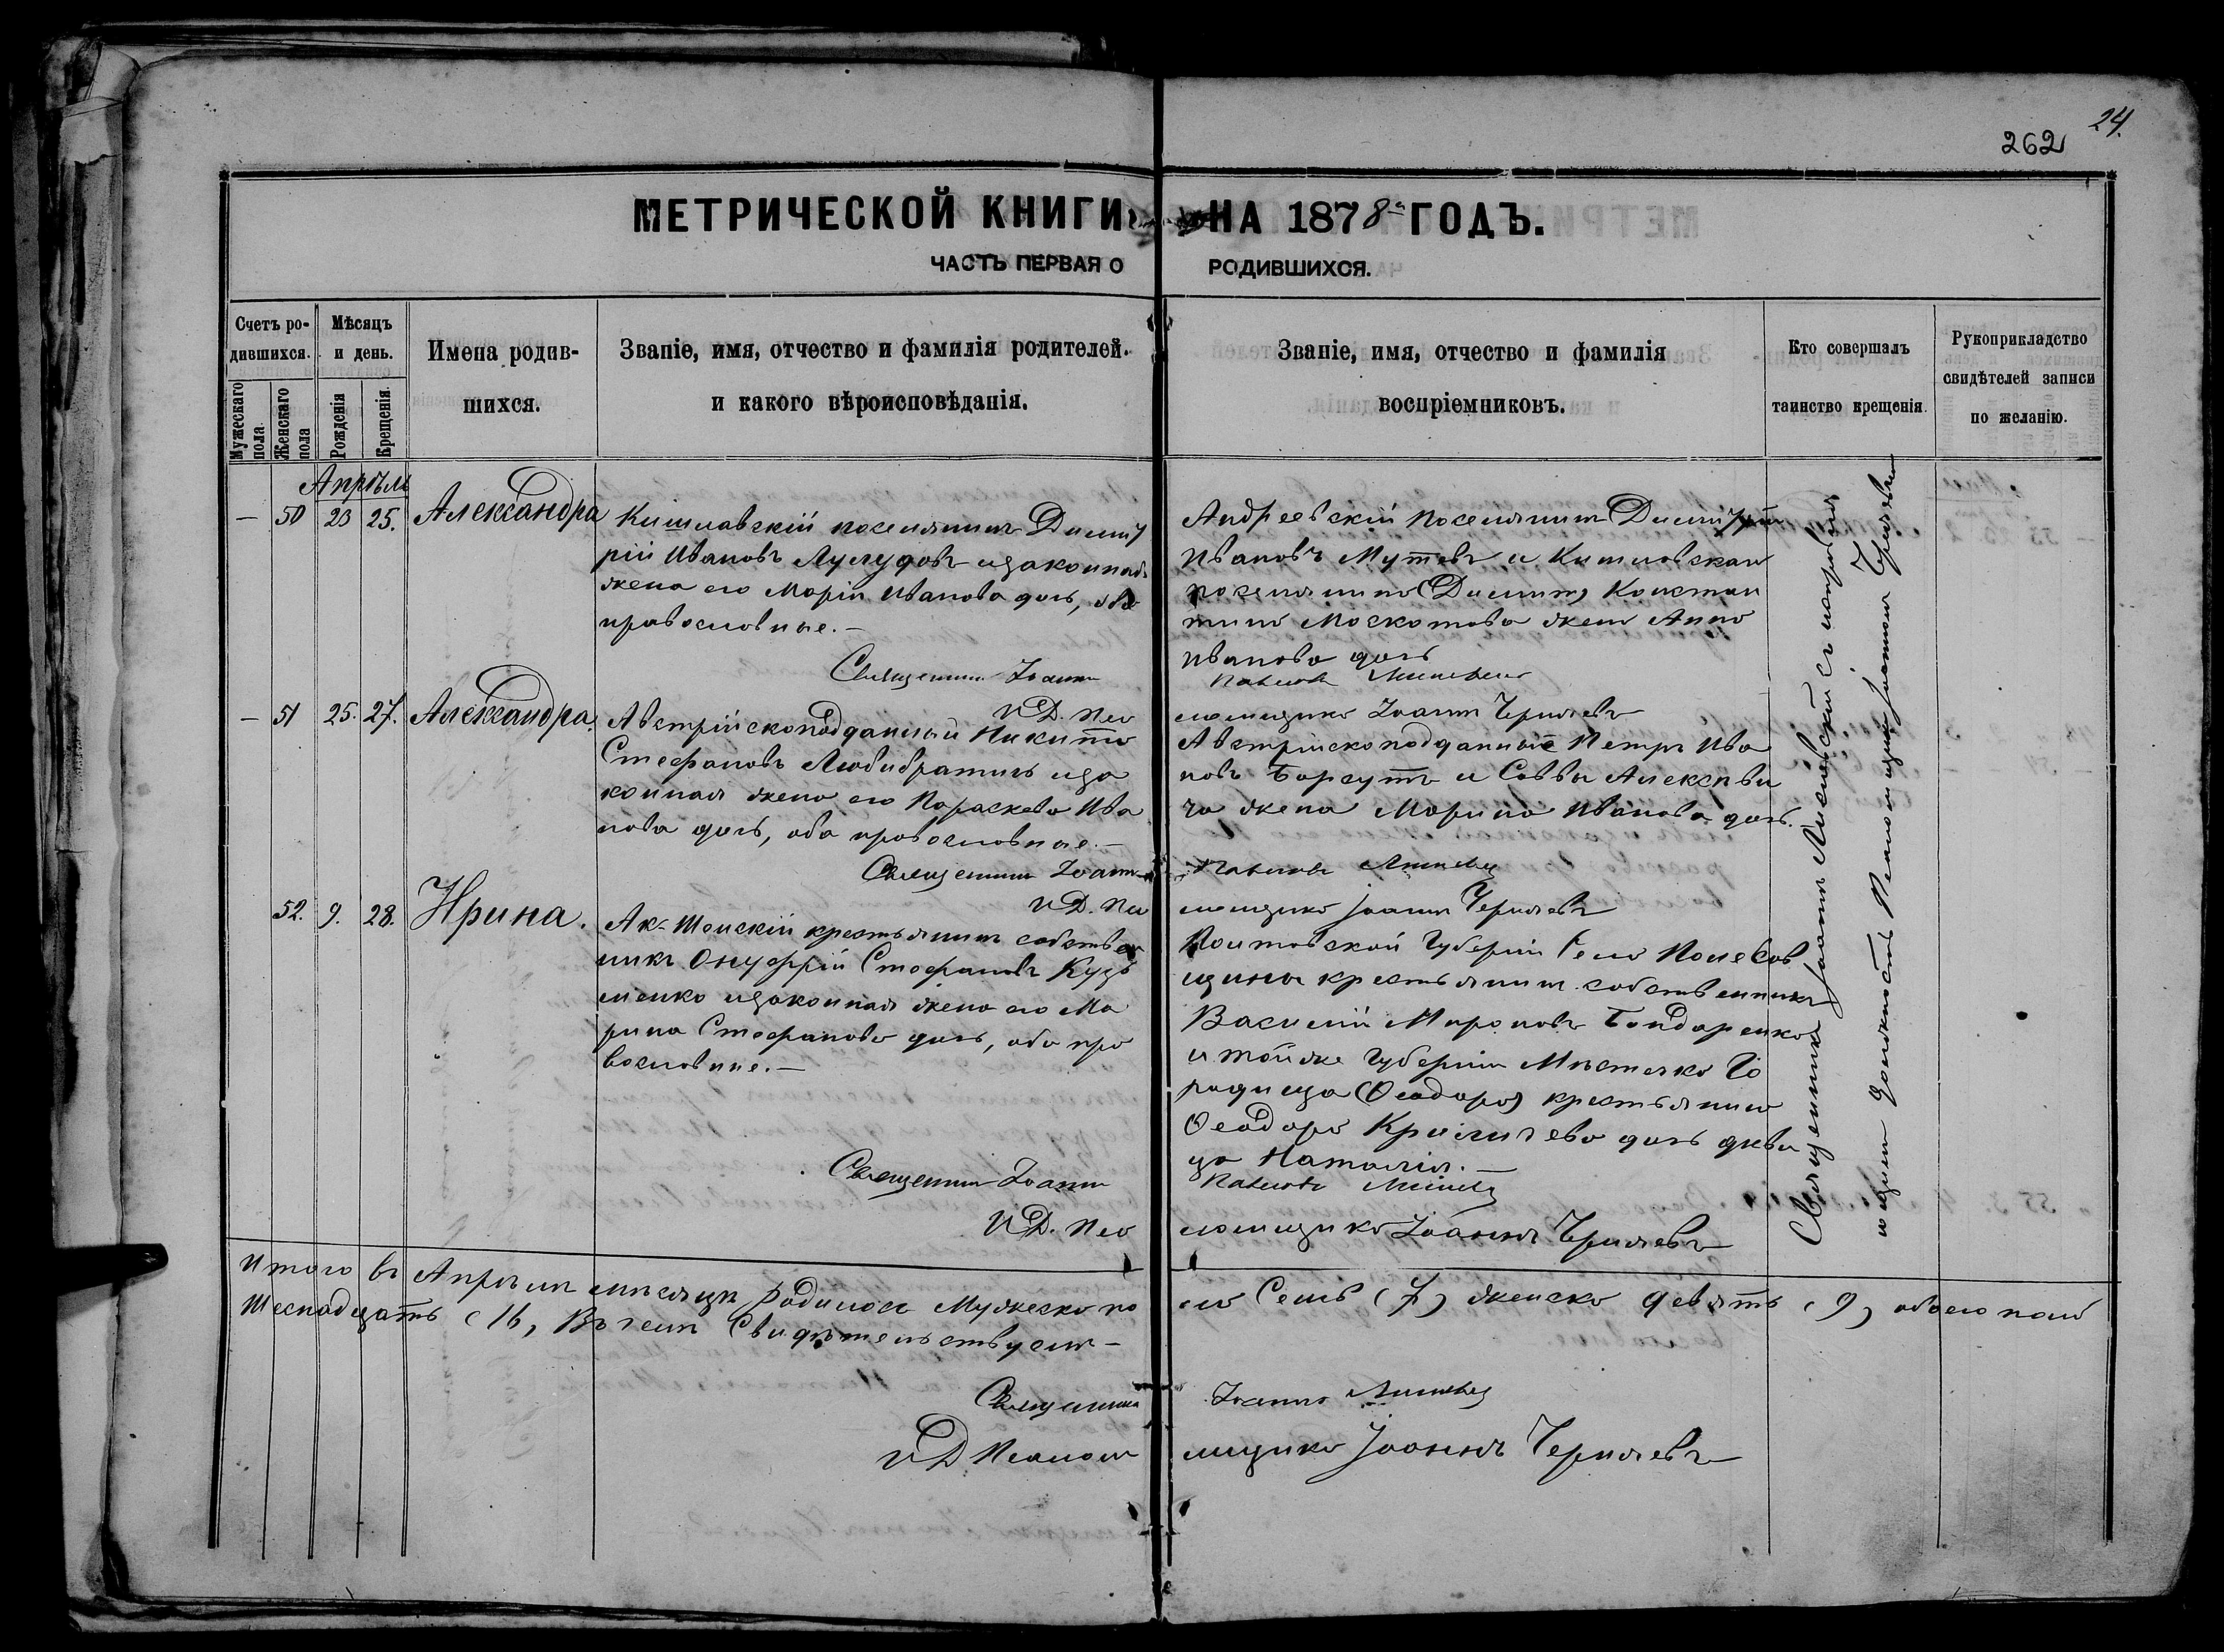 24.
262
МЕТРИЧЕСКОЙ КНИГИ НА 1878й ГОДЪ.
ЧАСТЬ ПЕРВАЯ О РОДИВШИХСЯ.
Счетъ ро-
дившихся.
Мужескаго пола.
Женскаго пола
Мѣсяцъ
и день.
Рожденія
Крещенія.
Имена родив-
шихся.
Званіе, имя, отчество и фамилія родителей.
и какого вѣроисповѣданія.
Званіе, имя, отчество и фамилія
воспріемниковъ.
Кто совершалъ
таинство крещенія.
Рукоприкладство
свидѣтелей записи
по желанію.
Апрѣль
— 50 23 25. Александра
Кишлавскій поселянинъ Димит
рій Ивановъ и законная
жена его Марія Иванова дочь, оба
православные. —
Священникъ Іоаннъ
И Д. Пса
Андреевскій поселянинъ Димитрій
Ивановъ Мутевъ и Кишловскаго
поселянина (Димит) Констан
тина Москотова жена Анна
Иванова дочь
Павловъ
ломщика Іоаннъ Черняевъ
— 51 25. 27. Александра.
Австрійскоподданный Никита
Стефановъ Любибратичъ и за
конная жена его Параскева Ива
нова дочь, оба православные. —
Священникъ Іоаннъ
И Д. Пса
Австрійскоподданный Петръ Ива
новъ и Саввы Алексѣви
ча жена Марина Иванова дочь. —
Павловъ
ломщика Іоаннъ Черняевъ
52. 9. 28. Ирина.
Ак-Шеискій крестьянинъ собствен
никъ Онуфрій Стефановъ Кузь
менко и законная жена его Ма
рина Стефанова дочь, оба пра
вославные. —
Священникъ Іоаннъ
И Д. Пса
Полтавской Губерніи Села
щины крестьянинъ собственникъ
Василій Мироновъ Бондаренко
и той же Губерніи Мѣстечка Го
родища (Феодора) крестьянина
Феодора дочь дѣви
ца Наталія. —
Павловъ
ломщика Іоаннъ Черняевъ
Священникъ Іоаннъ съ исправля
ющимъ должность Псаломщика Іоанномъ Черняевымъ
Итого въ Апрѣлѣ мѣсяцѣ родилось Мужеска по
ла Семь (7) женска девять (9) обоего пола
Шеснадцать (16, Въ чемъ Свидѣтельствуемъ —
Священникъ Іоаннъ
И Д Псалом
щика Іоаннъ Черняевъ